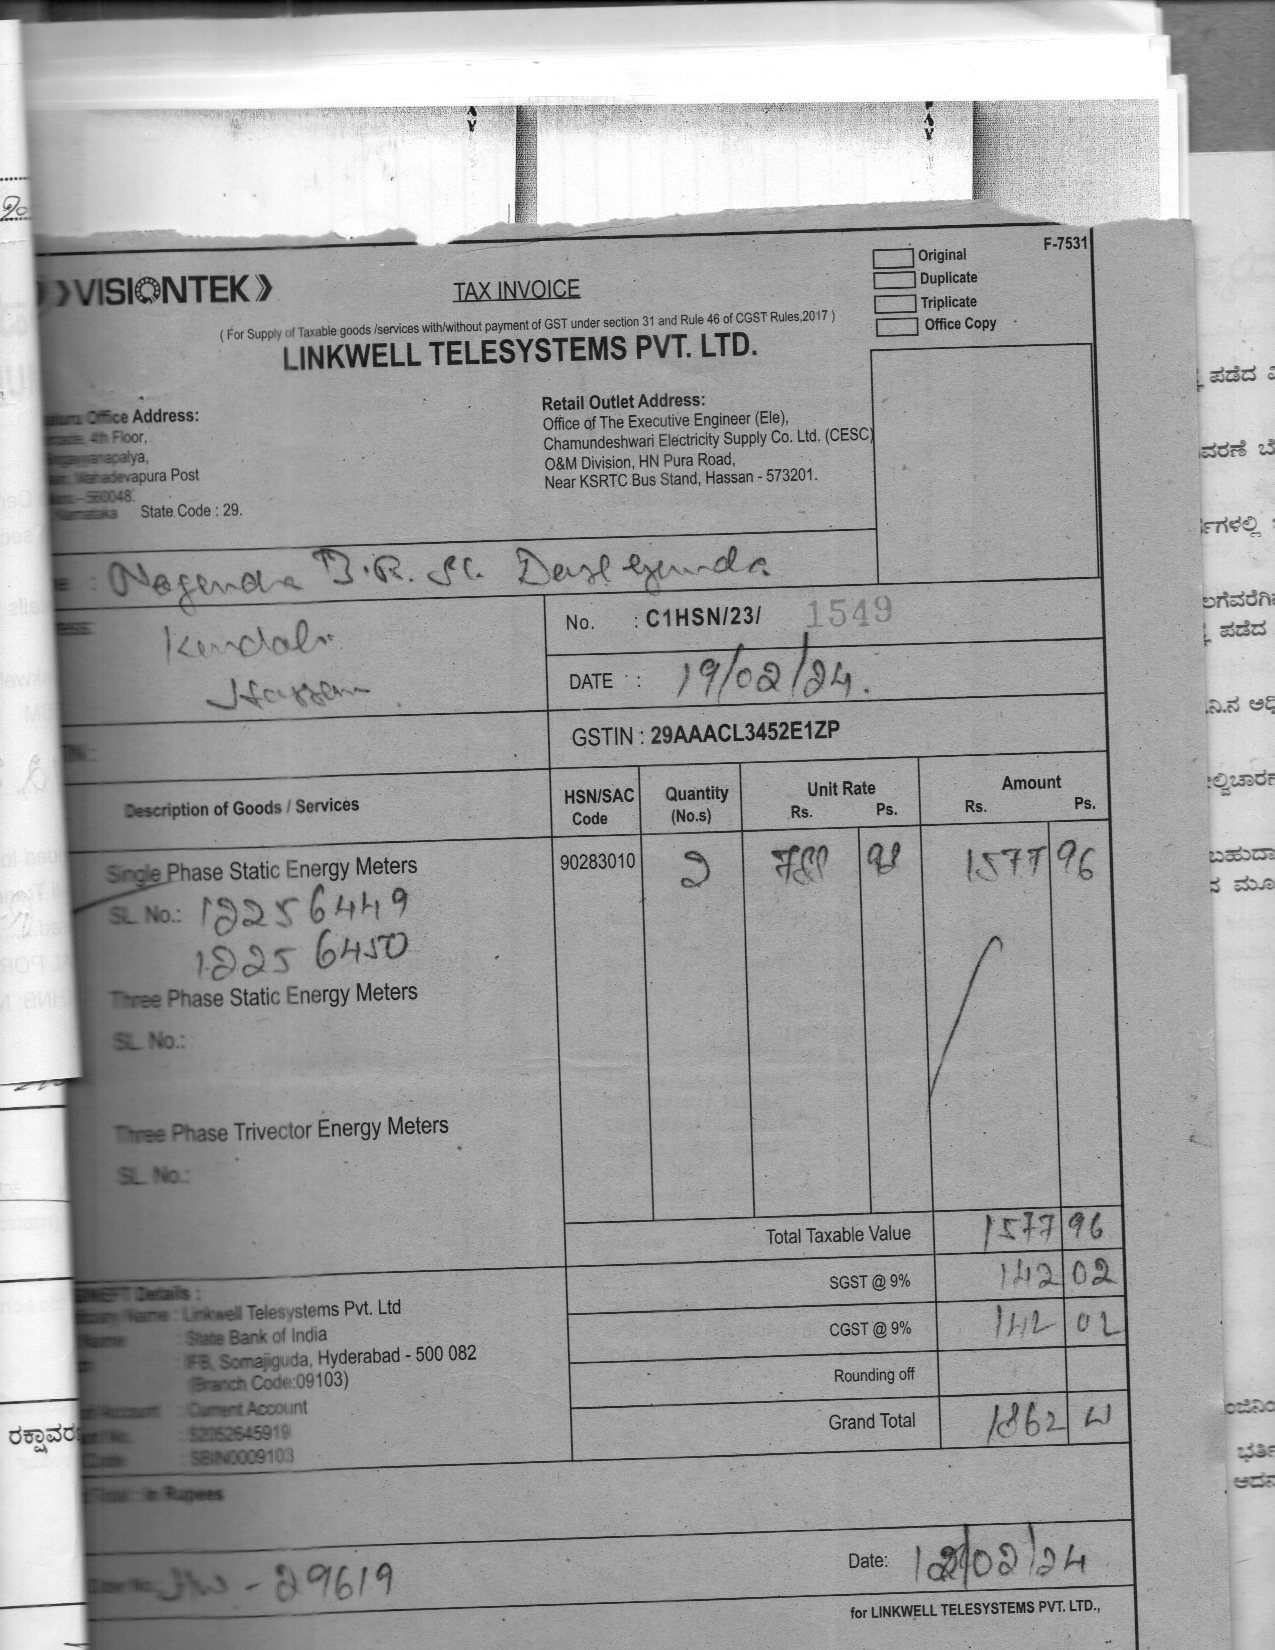 F-7531
Original
Duplicate
Triplicate
Office Copy
VISIONTEK
TAX INVOICE
( For Supply of Taxable goods /services with/without payment of GST under section 31 and Rule 46 of CGST Rules,2017 )
LINKWELL TELESYSTEMS PVT. LTD.
Office Address:
4th Floor,
Mahadevapura Post
- 560048.
Karnataka State Code : 29.
Retail Outlet Address:
Office of The Executive Engineer (Ele),
Chamundeshwari Electricity Supply Co. Ltd. (CESC)
O&M Division, HN Pura Road,
Near KSRTC Bus Stand, Hassan - 573201.
: Nagendra B.R. S/.
Hassan
No. : C1HSN/23/ 1549
DATE : 19/02/24.
GSTIN : 29AAACL3452E1ZP
Description of Goods / Services HSN/SAC Code Quantity (No.s) Unit Rate Rs. Ps. Amount Rs. Ps.
Single Phase Static Energy Meters 90283010 2 1577 96
SL. No.: 12256449
12256450
Three Phase Static Energy Meters
SL. No.:
Three Phase Trivector Energy Meters
SL. No.:
Total Taxable Value 1577 96
SGST @ 9% 142 02
CGST @ 9% 142 02
Rounding off
Grand Total 1862
Details :
Name : Linkwell Telesystems Pvt. Ltd
: State Bank of India
: IFB, Somajiguda, Hyderabad - 500 082
(Branch Code:09103)
Account : Current Account
: 52052645919
: SBIN0009103
in Rupees
- 29619
Date: 12/02/24
for LINKWELL TELESYSTEMS PVT. LTD.,
ಪಡೆದ
ಪಡೆದ